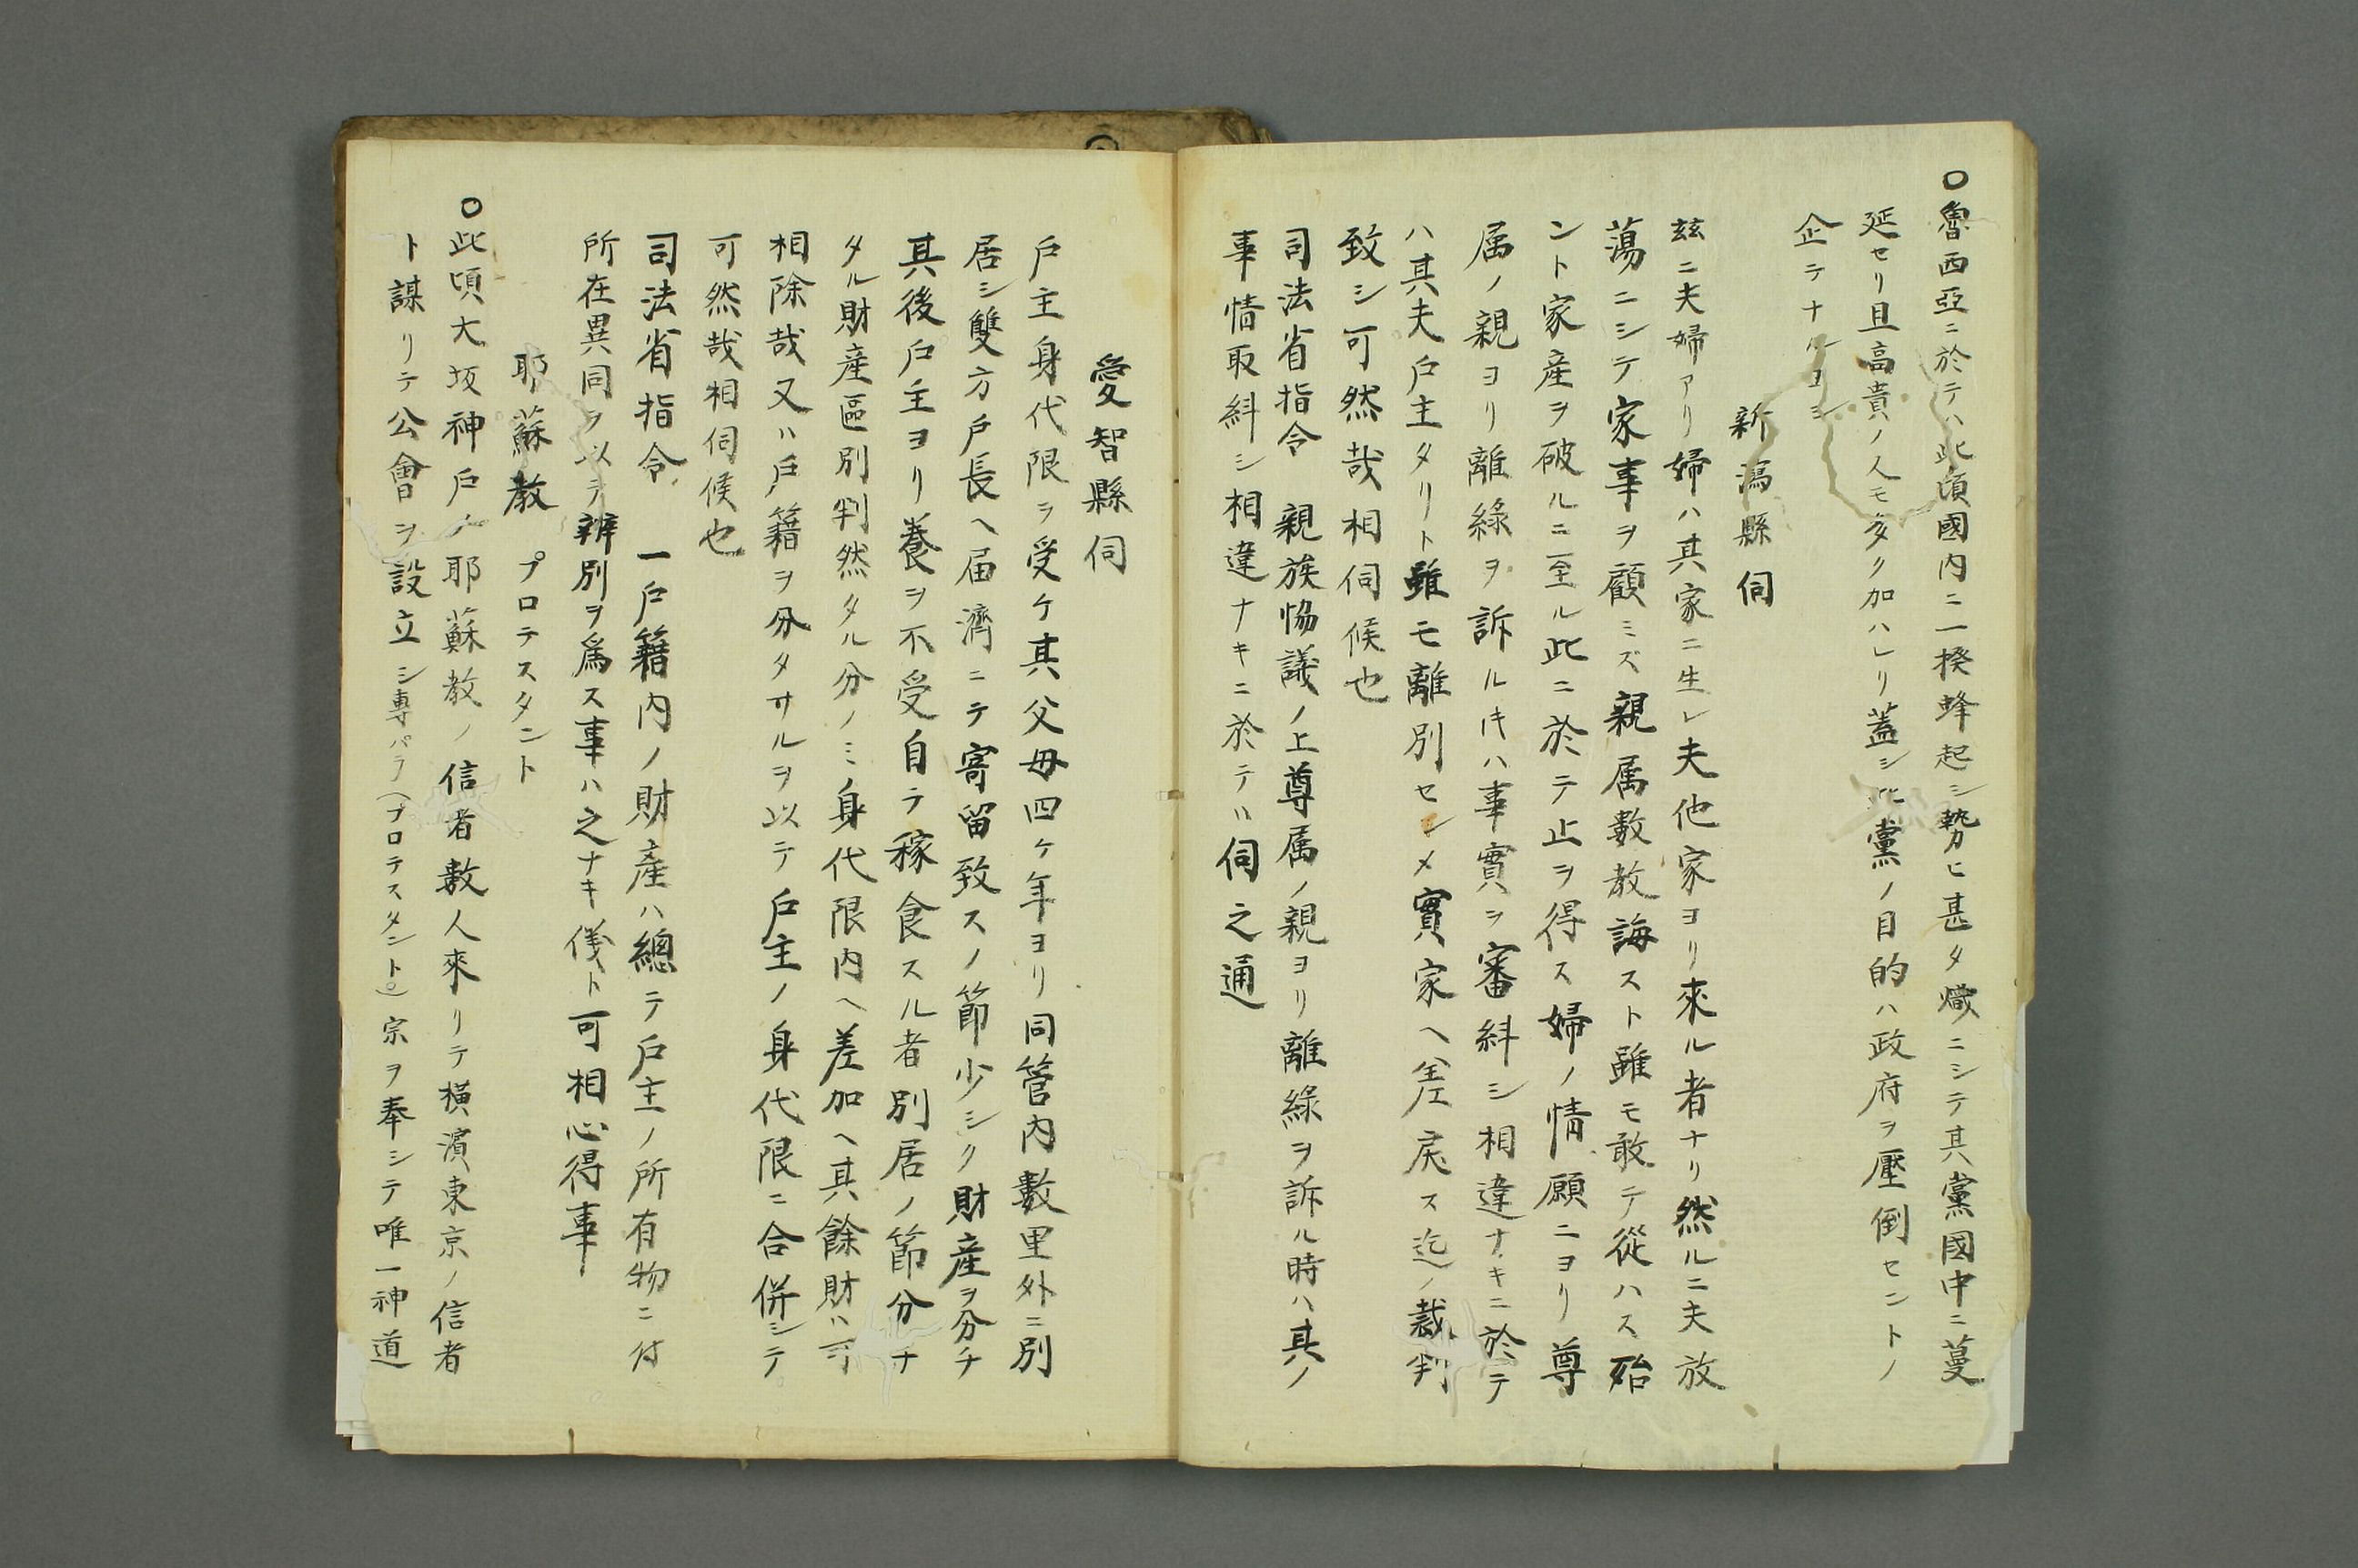 ○魯西亞ニ於テハ此頃國内ニ一揆蜂起シ勢ヒ甚タ熾ニシテ其黨國中ニ蔓
延セリ且高貴ノ人モ多ク加ハレリ蓋シ此黨ノ目的ハ政府ヲ壓倒セントノ
企テナルヨシ
新潟縣伺
茲ニ夫婦アリ婦ハ其家ニ生レ夫他家ヨリ來ル者ナリ然ルニ夫放
蕩ニシテ家事ヲ顧ミズ親属數教誨スト雖モ敢テ從ハス殆
ント家産ヲ破ルニ至ル此ニ於テ止ヲ得ス婦ノ情願ニヨリ尊
属ノ親ヨリ離縁ヲ訴ルキハ事實ヲ審糾シ相違ナキニ於テ
ハ其夫戸主タリト雖モ離別セシメ實家ヘ差戻ス迄ノ裁判
致シ可然哉相伺候也
司法省指令 親族協議ノ上尊属ノ親ヨリ離縁ヲ訴ル時ハ其ノ
事情取糾シ相違ナキニ於テハ伺之通
愛智縣伺
戸主身代限ヲ受ケ其父母四ケ年ヨリ同管内數里外ニ別
居シ雙方戸長ヘ届濟ニテ寄留致スノ節少シク財産ヲ分チ
其後戸主ヨリ養ヲ不受自テ稼食スル者別居ノ節分チ
タル財産區別判然タル分ノミ身代限内ヘ差加ヘ其餘財ハ可
相除哉又ハ戸籍ヲ分タサルヲ以テ戸主ノ身代限ニ合併シテ
可然哉相伺候也
司法省指令 一戸籍内ノ財産ハ總テ戸主ノ所有物ニ付
所在異同ヲ以テ辨別ヲ爲ス事ハ之ナキ儀ト可相心得事
耶蘇教 プロテスタント
○此頃大坂神戸ノ耶蘇教ノ信者數人來リテ横濱東京ノ信者
ト謀リテ公會ヲ設立シ専パラ(プロテスタント)宗ヲ奉シテ唯一神道